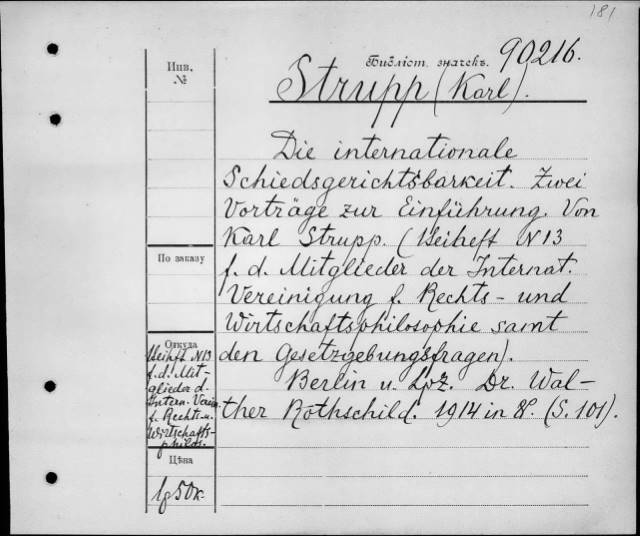 181
Библіот. значекъ. 90216.
Инв.
№
Strupp (Karl).
Die internationale
Schiedsgerichtsbarkeit. Zwei
Vorträge zur Einführung. Von
Karl Strupp. (Beiheft N 13
По заказу
f. d. Mitglieder der Internat.
Vereinigung f. Rechts- und
Wirtschaftsphilosophie samt
den Gesetzgebungsfragen).
Berlin u. Lpz. Dr. Wal-
ther Rothschild. 1914 in 8º. (S. 101).
Откуда
Beiheft N 13
f. d. Mit-
glieder d.
Intern. Verein.
f. Rechts-u.
Wirtschafts-
philos.
Цѣна
50к.